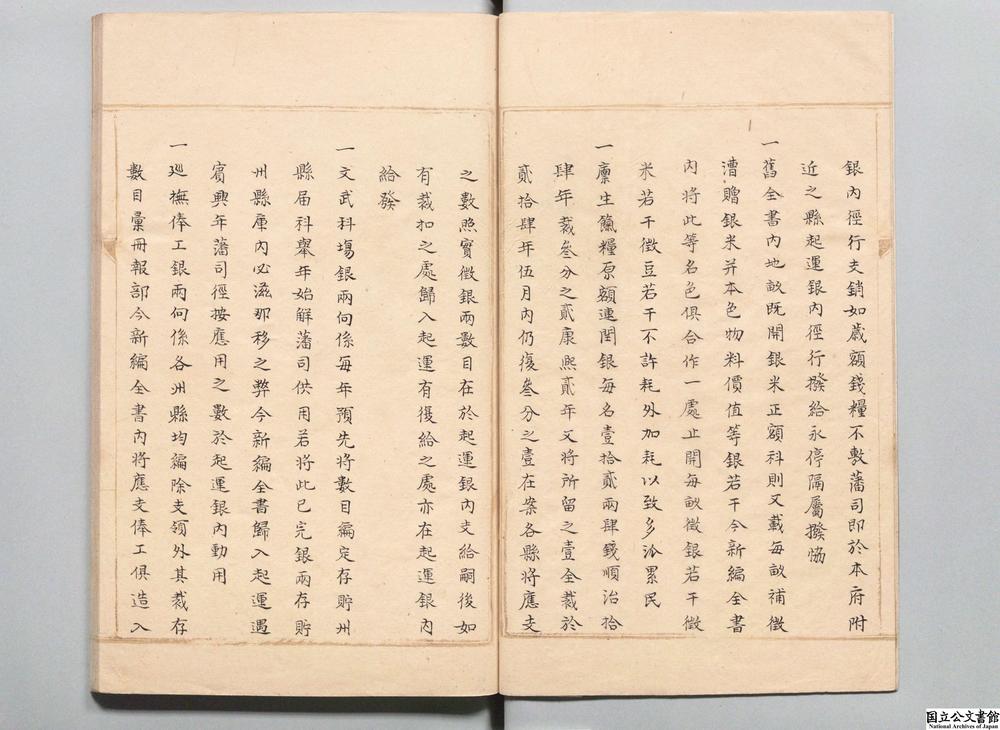 銀內徑行支銷如歲額錢糧不敷藩司即於本府附
近之縣起運銀內徑行撥給永停隔屬撥協
一舊全書內地畝既開銀米正額科則又載每畝補徵
漕贈銀米并本色物料價值等銀若干今新編全書
內將此等名色俱合作一處止開每畝徵銀若干徵
米若干徵豆若干不許耗外加耗以致多派累民
一廩生餼糧原額連閏銀每名壹拾貳兩肆錢順治拾
肆年裁叁分之貳康熙貳年又將所留之壹全裁於
貳拾肆年伍月內仍復叁分之壹在案各縣將應支
之數照實徵銀兩數目在於起運銀內支給嗣後如
有裁扣之處歸入起運有復給之處亦在起運銀內
給發
一文武科場銀兩向係每年預先將數目編定存貯州
縣屆科舉年始解藩司供用若將此已完銀兩存貯
州縣庫內必滋那移之弊今新編全書歸入起運遇
賓興年藩司徑按應用之數於起運銀內動用
一廵撫俸工銀兩向係各州縣均編除支領外其裁存
數目彙冊報部今新編全書內將應支俸工俱造入
国立公文書館
National Archives of Japan